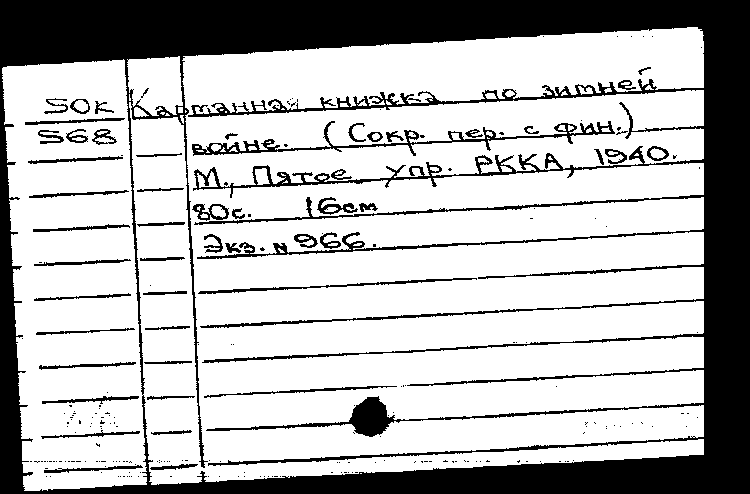 50к Карманная книжка по зимней
S68 войне. (Сокр. пер. с фин.)
М., Пятое упр. РККА, 1940.
80с. 16см
Экз. N 966.